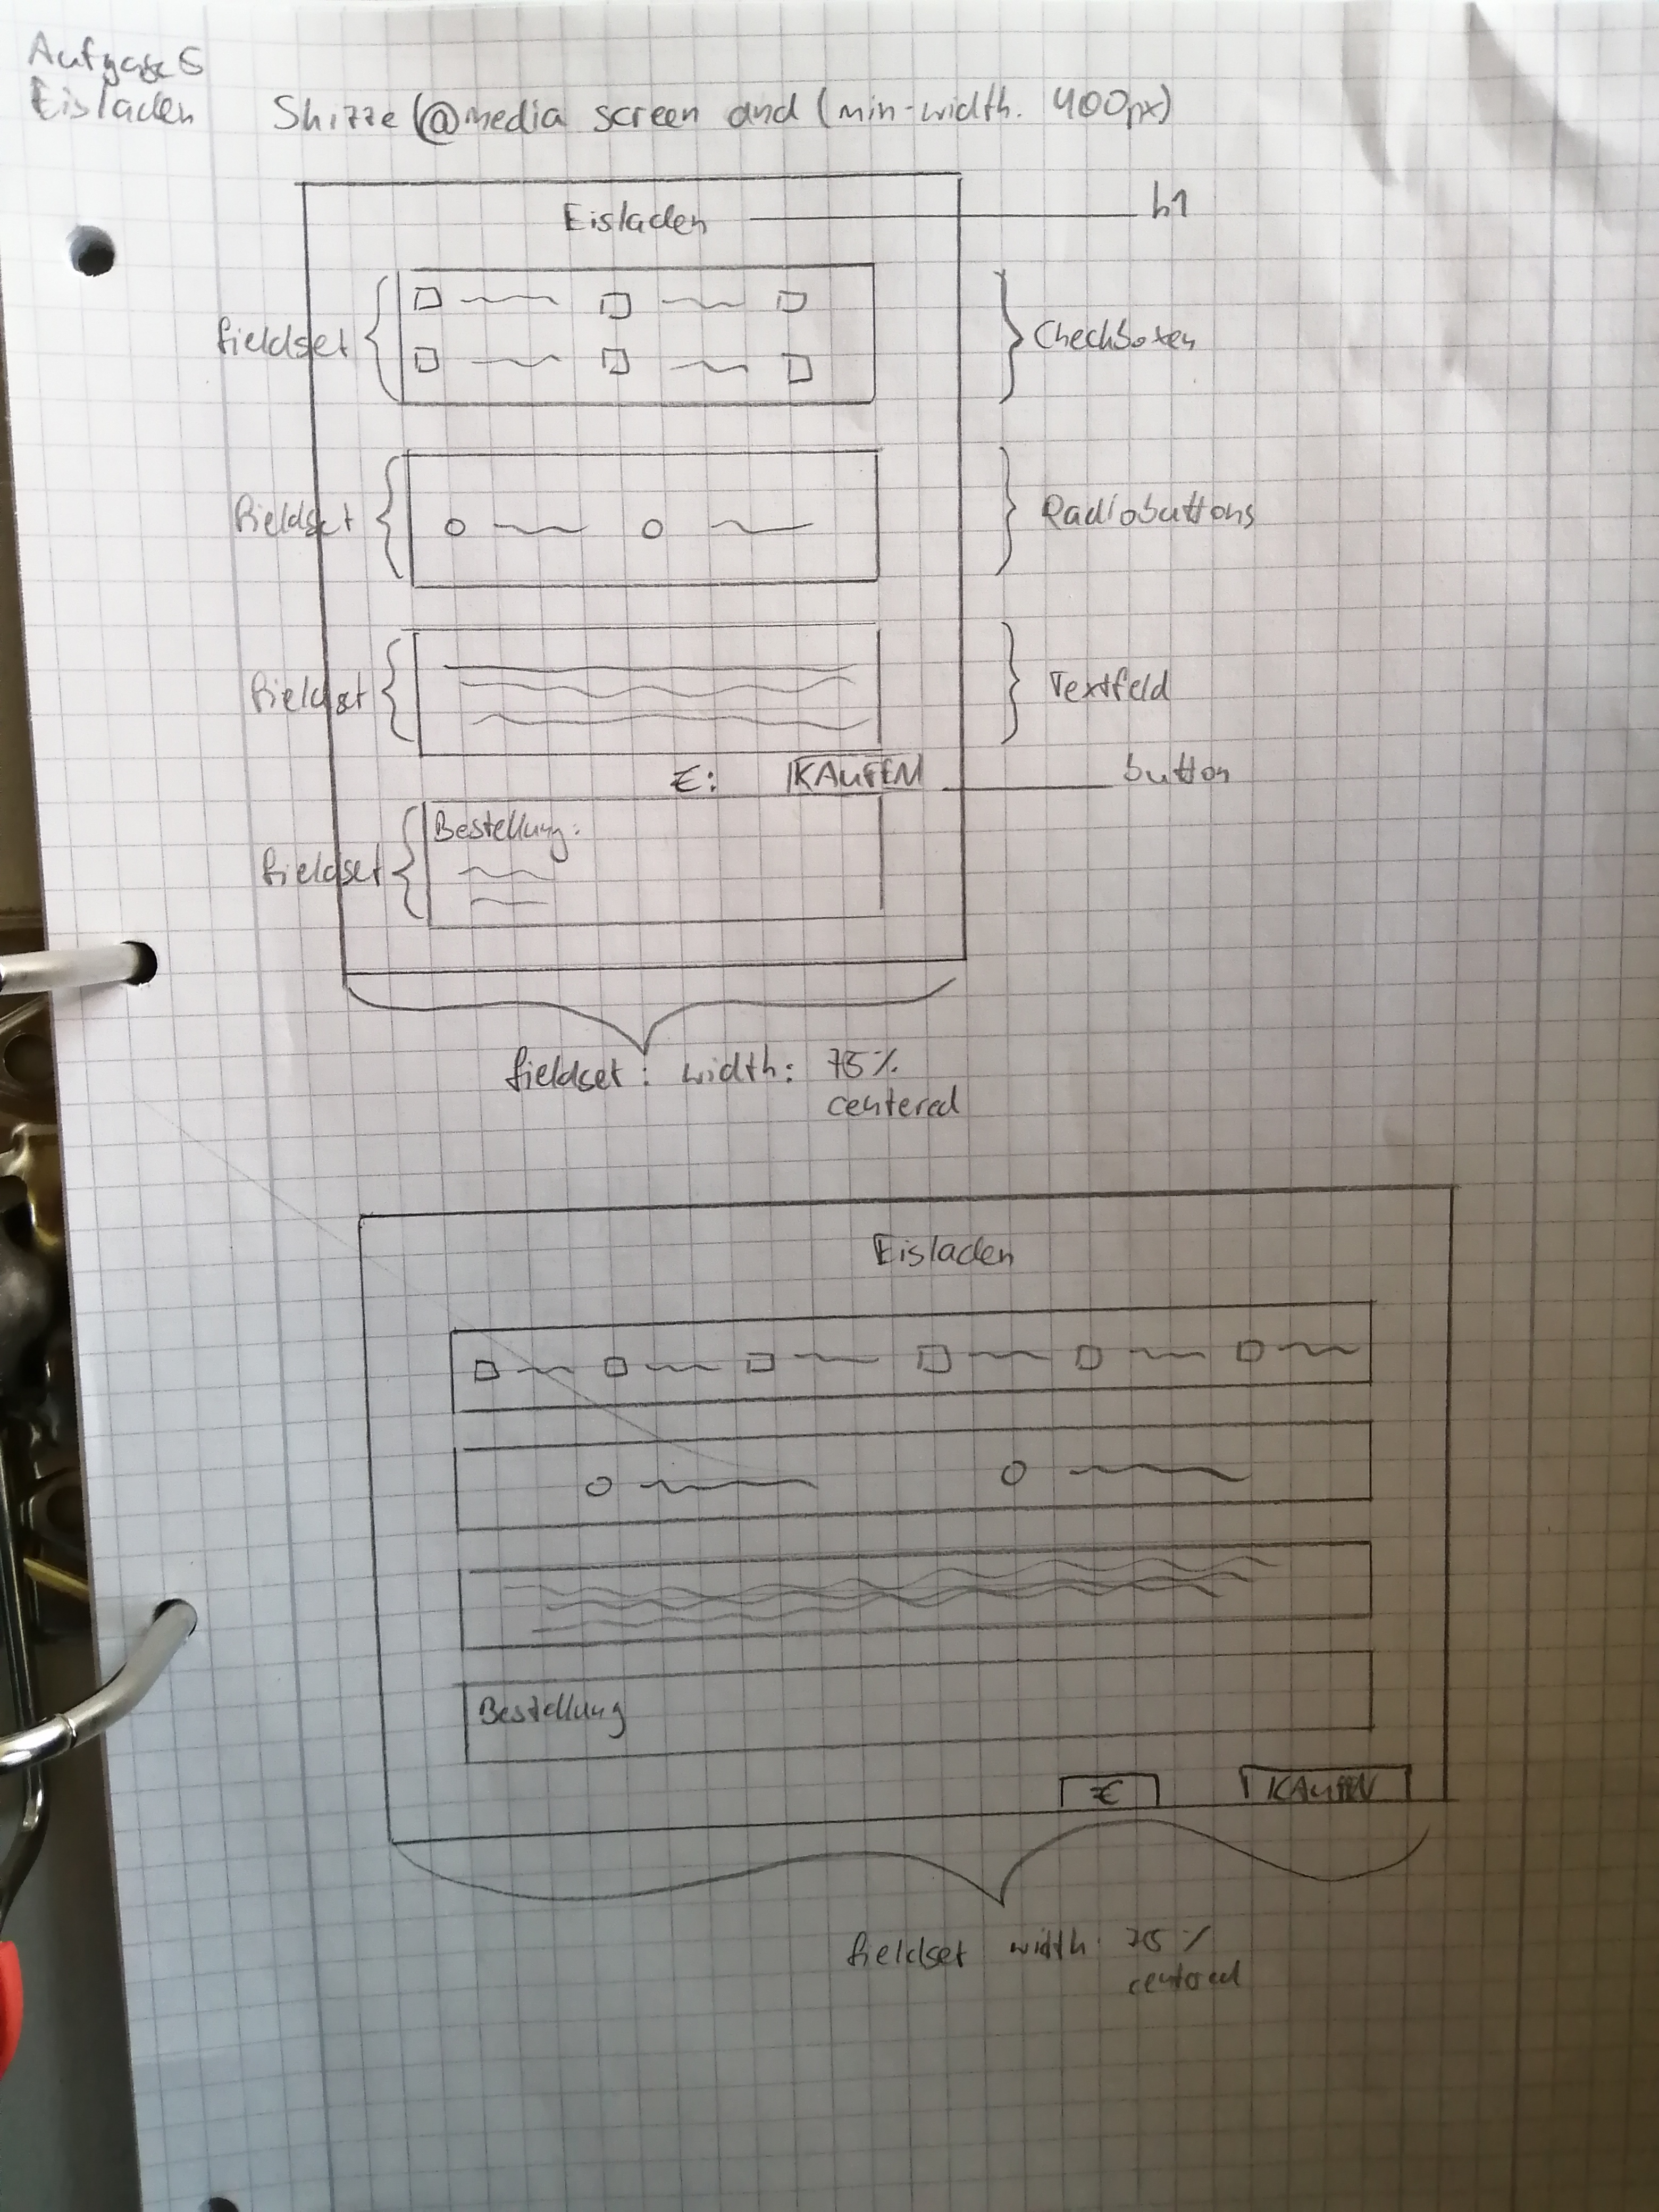 Aufgabe 5
Eisladen
Skizze (@media screen and (min-width: 400px)
Eisladen
h1
fieldset
Checkboxen
fieldset
Radiobuttons
fieldset
Textfeld
€: KAUFEN
button
Bestellung:
fieldset
fieldset: width: 75%
centered
Eisladen
Bestellung
€ KAUFEN
fieldset width: 75%
centered